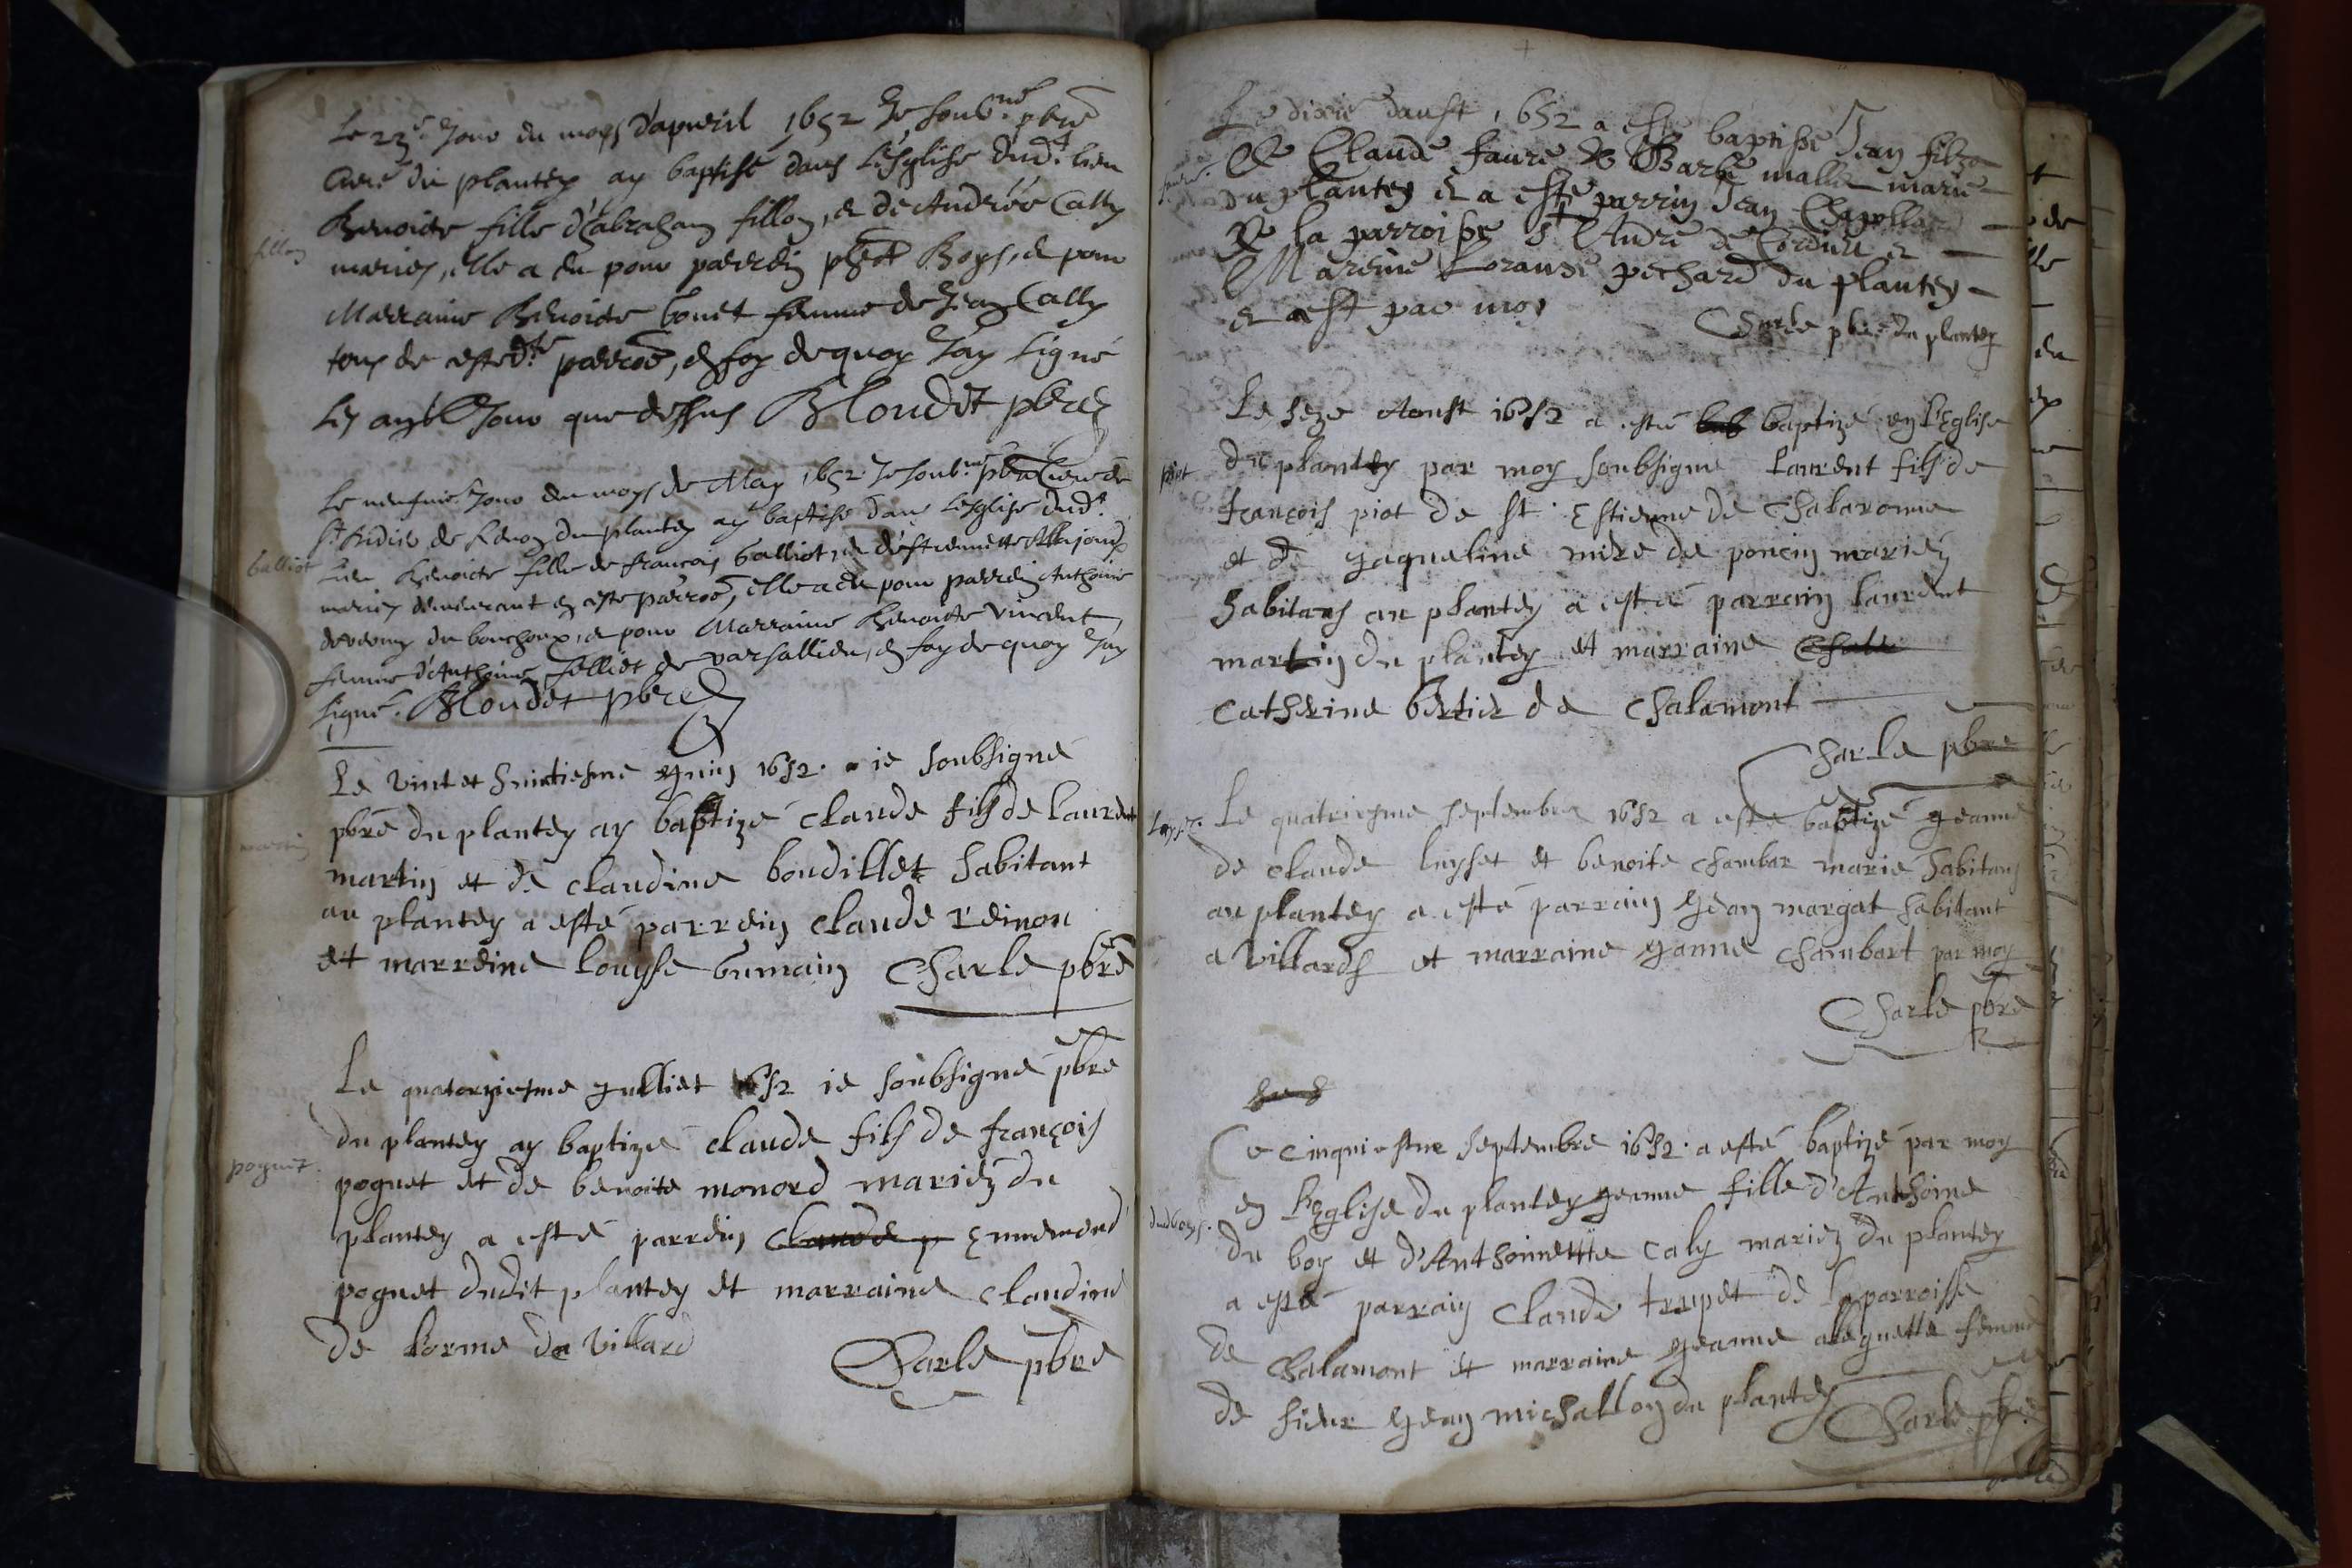 Le 23e Jour du moys d'apvril 1652 Je soubné pbre
Curé du plantey ay baptisé dans L'esglise dudt lieu
fillon
Benoicte fille d'habraham fillon, & de Andrée Cally
mariés, elle a eu pour parrein phet Boys, & pour
Marraine Benoicte bonet femme de Jean Cally
tous de ceste dte parroe, & foy de quoy J'ay signé
Les an & Jour que dessus Blondet pbre
Le neufme Jour du moys de May 1652 Je soubné pbre Curé de
St de du plantey ay baptisé dans L'esglise dudt
balliot
Lieu Benoicte fille de francois balliot, & d'estiennette
mariés demeurant en ceste parroe, elle a eu pour parrein Anthoine
du bouchoux, & pour Marraine Benoicte Vincent
femme d'Anthoine felliet de varsallieu, & foy de quoy J'ay
signé. Blondet pbre
Le vint et huictiesme guin 1652. ie soubsigné
pbre du plantey ay baptizé claude fils de laurent
martin
martin et de claudine boudillet habitant
au plantey a esté parrein claude reimon
et marreine louysse humain Charle pbre
Le quatorziesme gulliet 1652 ie soubsigné pbre
du plantey ay baptizé claude fils de françois
poguet
poguet et de benoite monord mariez du
plantey a esté parrein claude p Ennemond
poguet dudit plantey et marraine claudine
de lorme de Villard
Charle pbre
Le dixie daust 1652 a esté baptisse Jean filz
faure
De Claude faure & Barbe malle marie
du plantey & a este parrin Jean Chapolla
De la parroisse St André de Corduit &
Mareine Loranse pechard du plantey
& a est par moy
Charle pbre du plantey
Le seze Aoust 1652 a esté bab baptizé en l'Eglise
piot
du plantey par moy soubsigné laurent fils de
françois piot de st Estienne de Chalaronne
et de gaqueline mire de poncin mariez
habitans au plantey a esté parrain laurent
martin du plantey et marraine Chale
Catherine bertier de Chalamont
Charle pbre
Luysset
Le quatriesme septembre 1652 a esté baptizé geanne
de claude luysset et benoite chambar marié habitans
au plantey a esté parrain gean margat habitant
a Villards et marraine ganne chambart par moy
Charle pbre
Le cinquiesme septembre 1652. a esté baptizé par moy
en l'Eglise du plantey geanne fille d'Anthoine
dudboys.
du boy et d'Anthoinette caly mariez du plantey
a esté parrain Claude trupet de la parroisse
de Chalamont et marraine geanne alleguette femme
de sieur gean michallon du plantey
Charle pbre